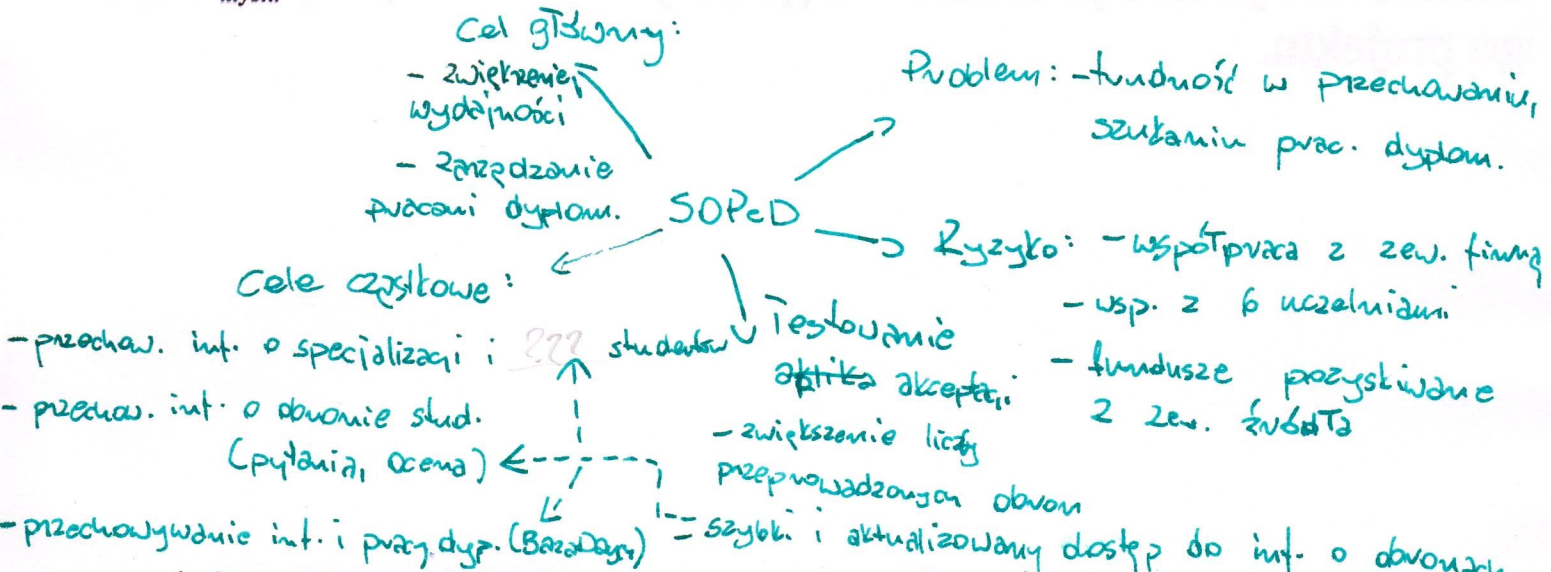 Cel główny:
- zwiększenie
wydajności
- zarządzanie
pracami dyplom.
Problem: - trudność w przechowaniu,
szukaniu prac. dyplom.
SOPeD
Ryzyko: - współpraca z zew. firmą
- wsp. z 6 uczelniami
- fundusze pozyskiwane
z zew. źródła
Cele cząstkowe:
- przechow. inf. o specjalizacji i ??? studentów
- przechow. inf. o obronie stud.
(pytania, ocena)
- przechowywanie inf. i pracy dyp. (Baza Danych)
Testowanie
akceptacji
- zwiększenie liczby
przeprowadzonych obron
- szybki i aktualizowany dostęp do inf. o obronach